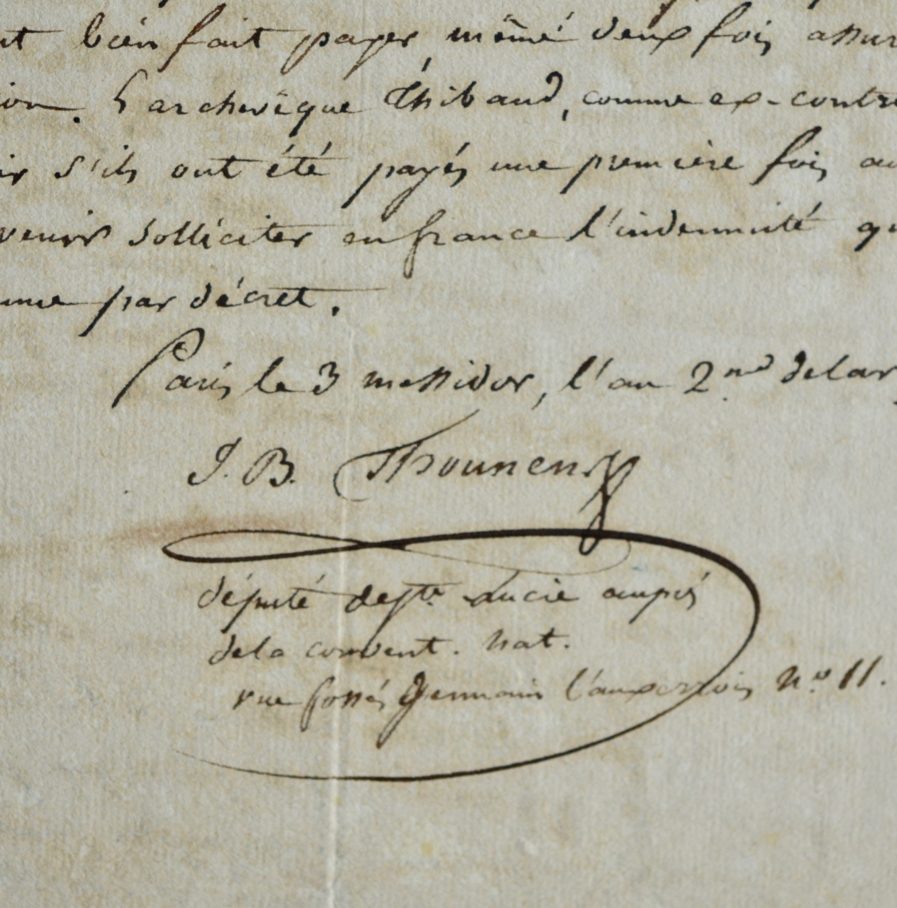 nt bien fait payer même deux fois assur
ion. L'archevêque Thibaud, comme ex-contr
ir s'ils ont été payés une première fois au
venir solliciter en france l'indemnité qu
par décret.
Paris le 3 messidor, l'an 2nd de la r
J. B. Thounens
député de Ste Lucie auprès
de la convent. nat.
rue fossés Germain l'auxerrois No 11.